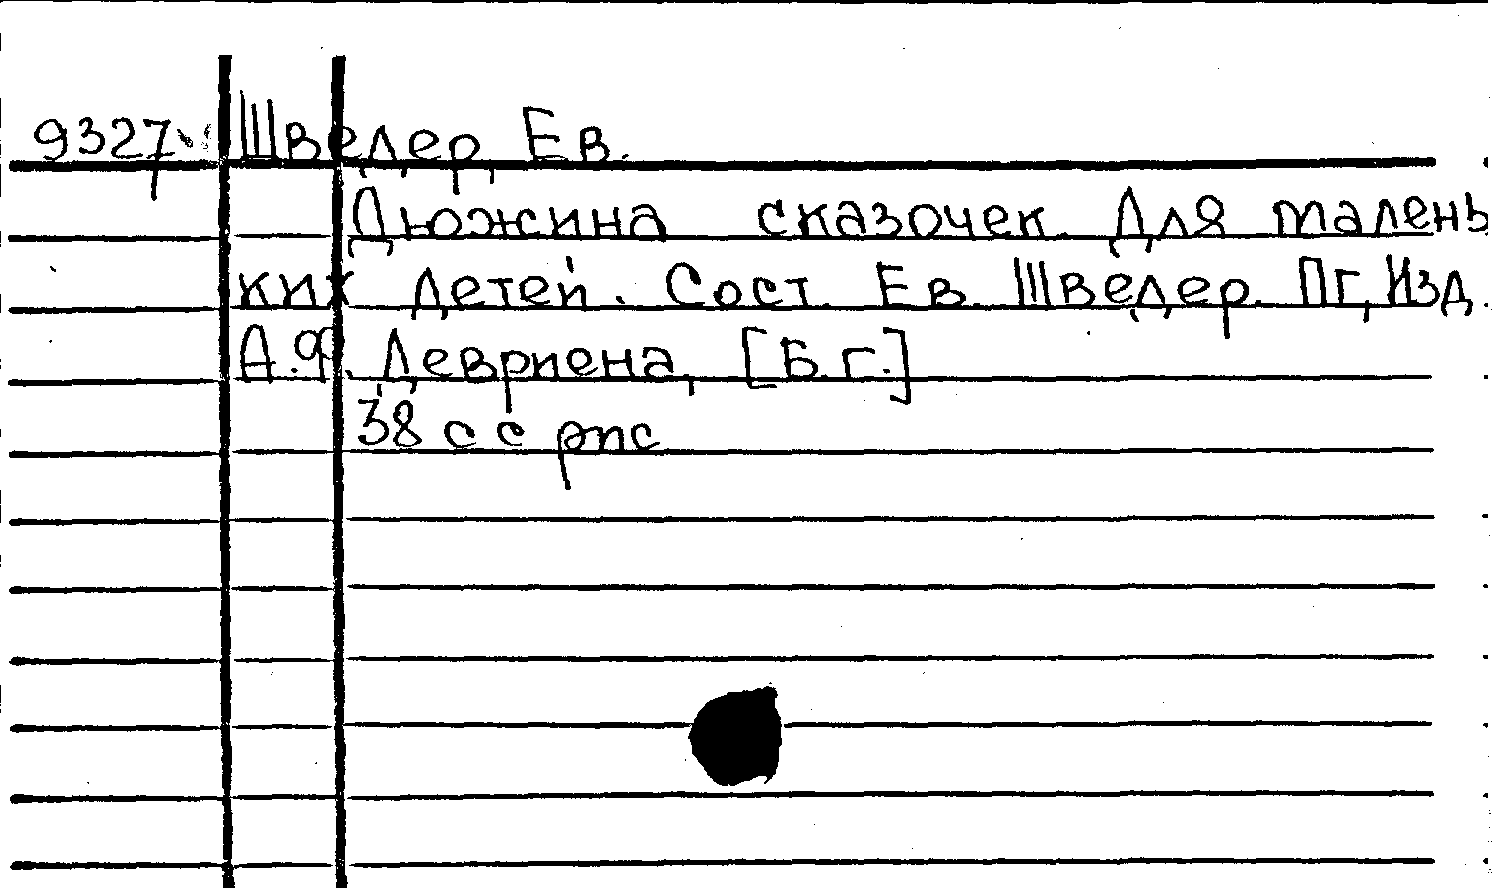 9327 Шведер, Ев.
Дюжина сказочек. Для малень
ких детей. Сост. Ев. Шведер. Пг, Изд.
А.Ф. Девриена, [Б.г.]
38 с с рис